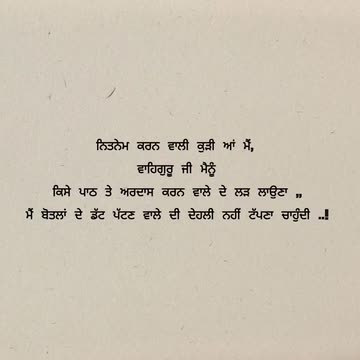 ਨਿਤਨੇਮ ਕਰਨ ਵਾਲੀ ਕੁੜੀ ਆਂ ਮੈਂ,
ਵਾਹਿਗੁਰੂ ਜੀ ਮੈਨੂੰ
ਕਿਸੇ ਪਾਠ ਤੇ ਅਰਦਾਸ ਕਰਨ ਵਾਲੇ ਦੇ ਲੜ ਲਾਉਣਾ ,,
ਮੈਂ ਬੋਤਲਾਂ ਦੇ ਡੱਟ ਪੱਟਣ ਵਾਲੇ ਦੀ ਦੇਹਲੀ ਨਹੀਂ ਟੱਪਣਾ ਚਾਹੁੰਦੀ ..!